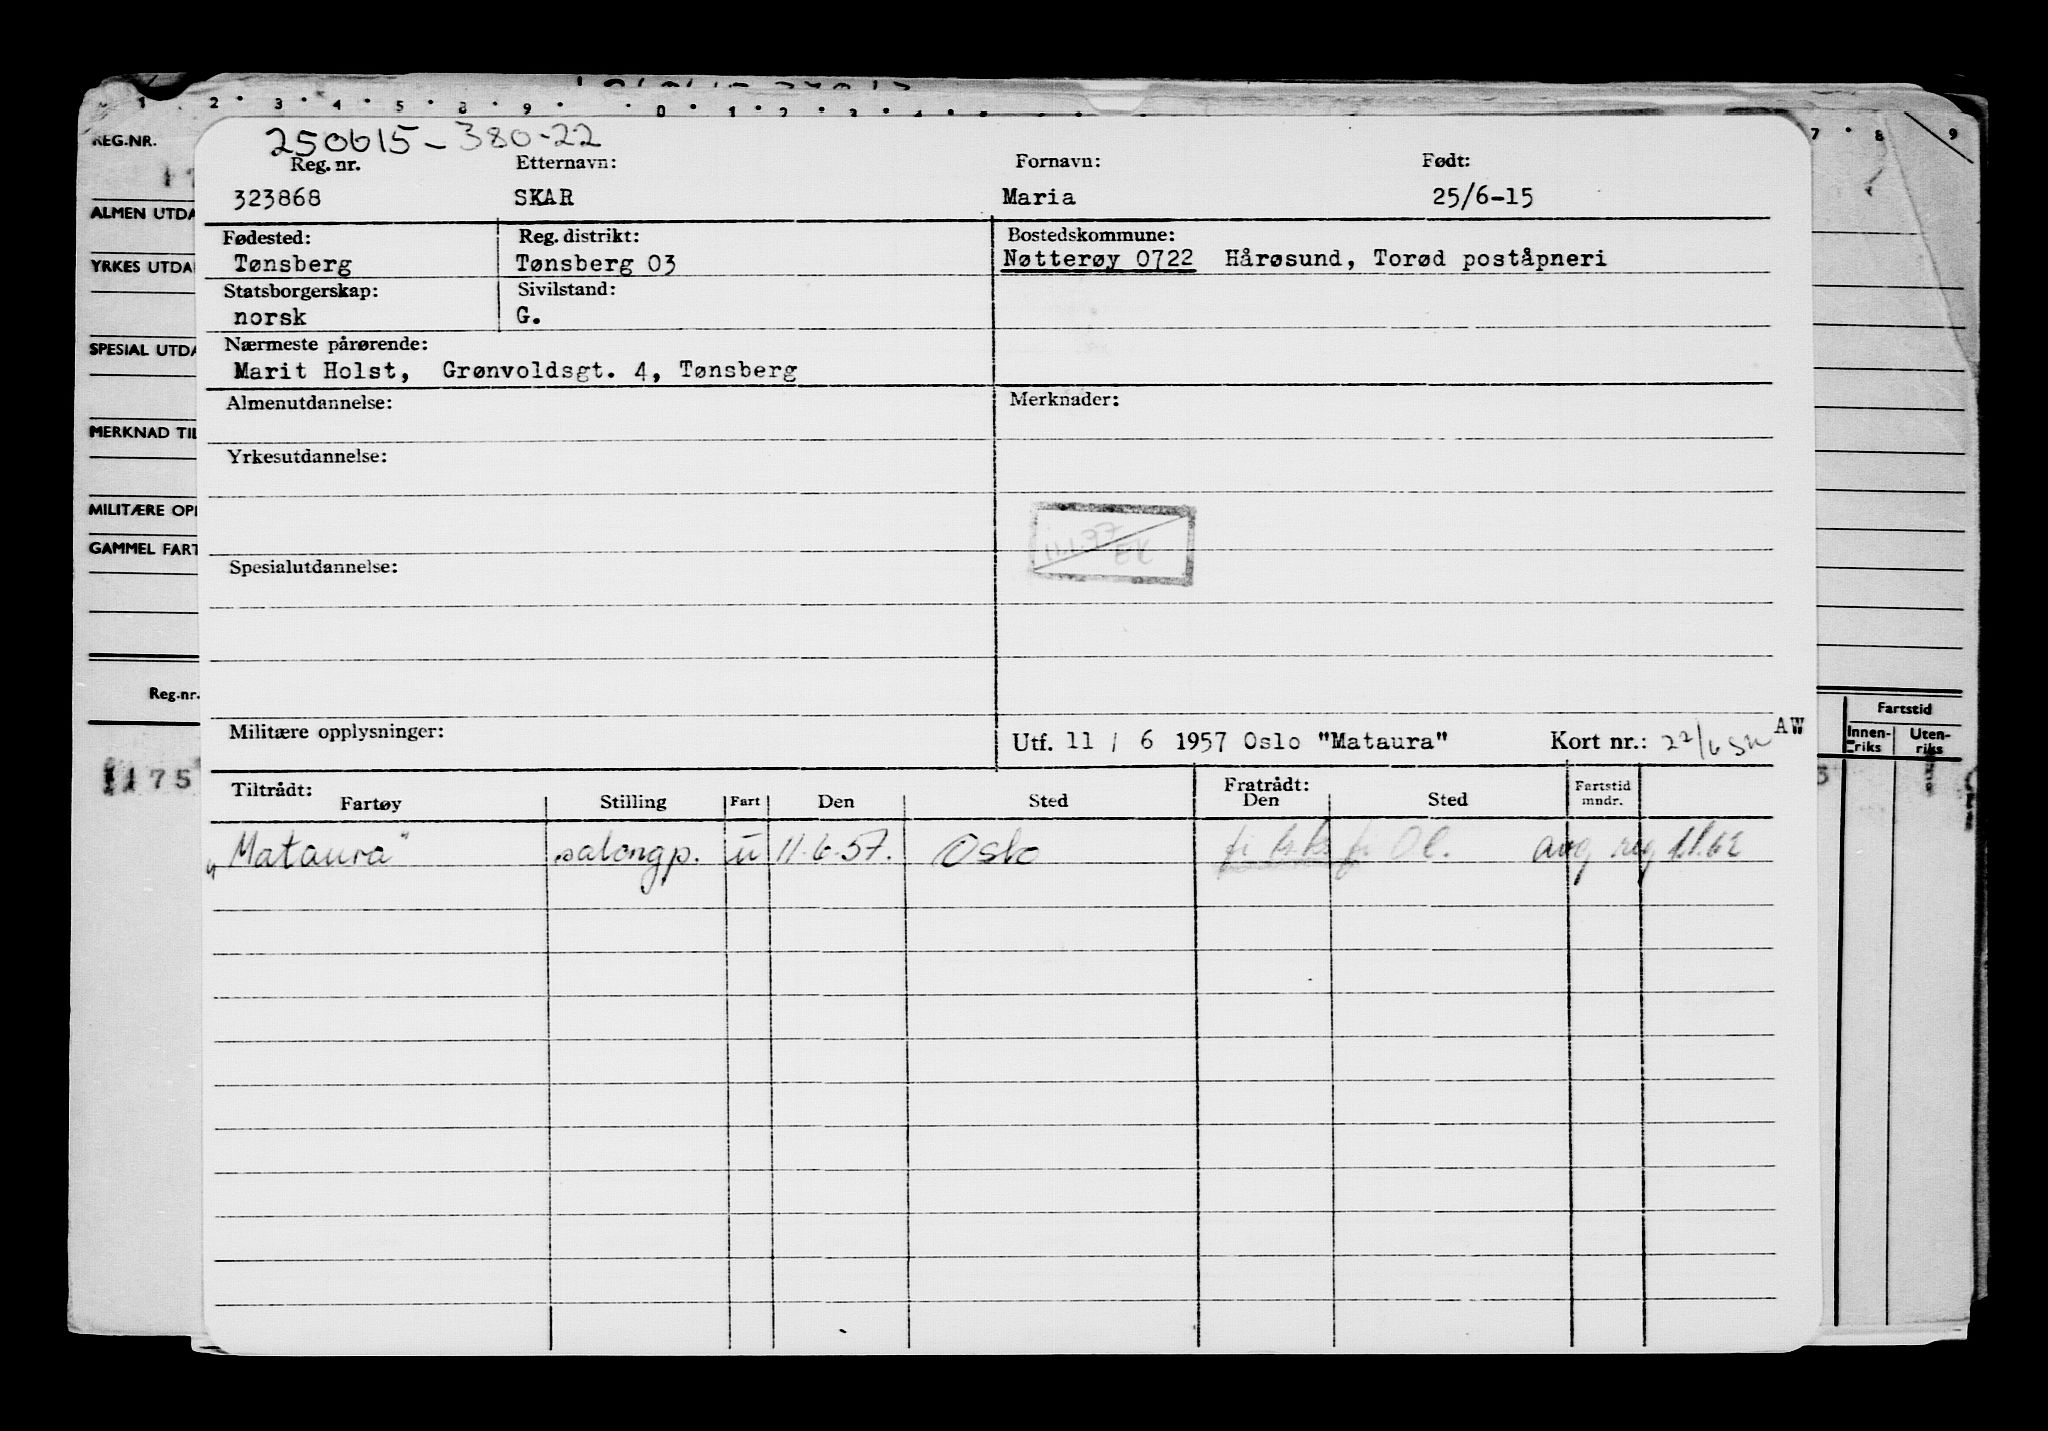 1 2 3 4 5 8 9 0 1 2 3 4 5 7 8 9
REG.NR.
250615-380-22
Reg. nr. Etternavn: Fornavn: Født:
323868 SKAR Maria 25/6-15
ALMEN UTDA
Fødested: Reg. distrikt: Bostedskommune:
Tønsberg Tønsberg 03 Nøtterøy 0722 Hårøsund, Torød poståpneri
YRKES UTDA
Statsborgerskap: Sivilstand:
norsk G.
Nærmeste pårørende:
SPESIAL UTDA
Marit Holst, Grønvoldsgt. 4, Tønsberg
Almenutdannelse: Merknader:
MERKNAD TIL
Yrkesutdannelse:
MILITÆRE OPP
GAMMEL FART
EK
Spesialutdannelse:
Reg.nr. Fartstid
Militære opplysninger: Utf. 11 / 6 1957 Oslo "Mataura" Kort nr.: 22/6 AW
Innen-riks Uten-riks
1175
Tiltrådt: Fratrådt:
Fartøy Stilling Fart Den Sted Den Sted Fartstid mndr.
"Mataura" salongp. u 11.6.57. Oslo avg reg 1.1.62